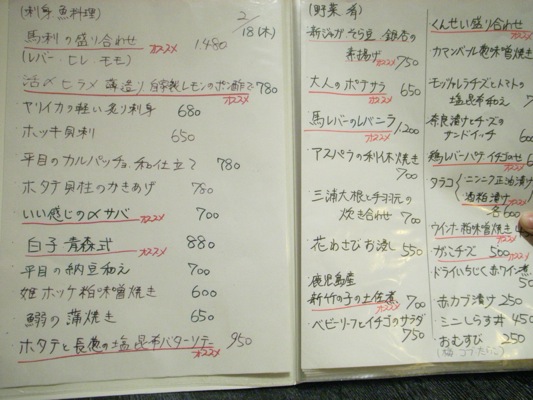 (刺身 魚料理)
2/18(木)
馬刺の盛り合わせ オススメ 1.480
(レバー・ヒレ モモ)
活〆ヒラメ 薄造り 自家製レモンのポン酢で 780
オススメ
ヤリイカの軽い炙り刺身 680
ホッキ貝刺 650
平目のカルパッチョ、和仕立て 780
ホタテ貝柱のかきあげ 780
いい感じの〆サバ オススメ 700
白子 青森式 オススメ 880
平目の納豆和え 700
姫ホッケ粕味噌焼き 600
鰯の蒲焼き 650
ホタテと長葱の塩昆布バターソテー 950
オススメ
(野菜 肴)
新ジャガ そら豆 銀杏の
素揚げ 750
オススメ
大人のポテサラ 650
オススメ
馬レバーのレバニラ 1.200
オススメ
アスパラの
700
三浦大根と手羽元の
炊き合わせ 700
花わさびお浸し 550
鹿児島産
新竹の子の土佐煮 700
オススメ
ベビーリーフとイチゴのサラダ
750
くんせい盛り合わせ
オススメ
カマンベール粕味噌焼き
モッツァレラチーズとトマトの
塩昆布和え
奈良漬けとチーズの
サンドイッチ 600
鶏レバーパテ イチゴのせ
オススメ
タラコ ニンニク正油漬け
酒粕漬け
オススメ
各600
ウインナー粕味噌焼き
オススメ
がっこチーズ 500
オススメ
ドライいちじく赤ワイン煮
赤カブ漬け 250
ミニしらす丼 450
おむすび 250
(梅 コブ たらこ)